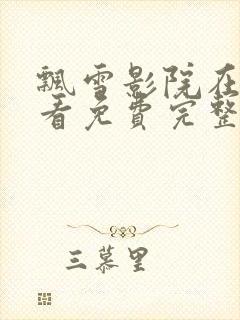 飘雪影院在
看免费完整
三慕里